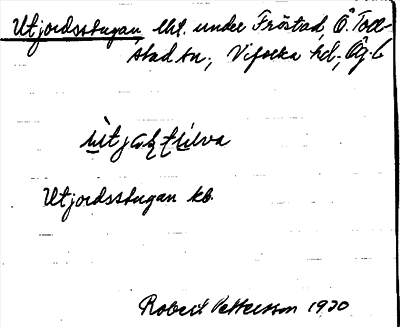 Utjordsstugan lht. under Fröstad, Ö. Toll-
stad sn., Vifolka hd., Ög. l.
Utjordsstugan kb.
Robert Pettersson 1930